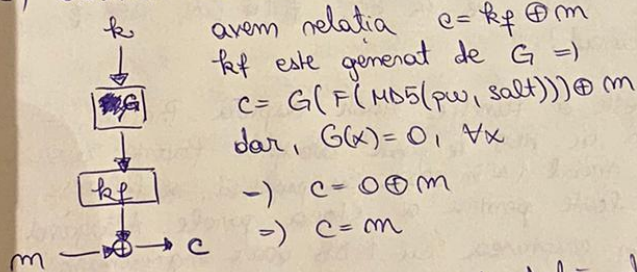 k
avem relația c = kf ⊕ m
kf este generat de G =)
G
c = G(F(MD5(pw, salt))) ⊕ m
dar, G(x) = 0, ∀x
kf
-) c = 0 ⊕ m
=) c = m
m → ⊕ → c